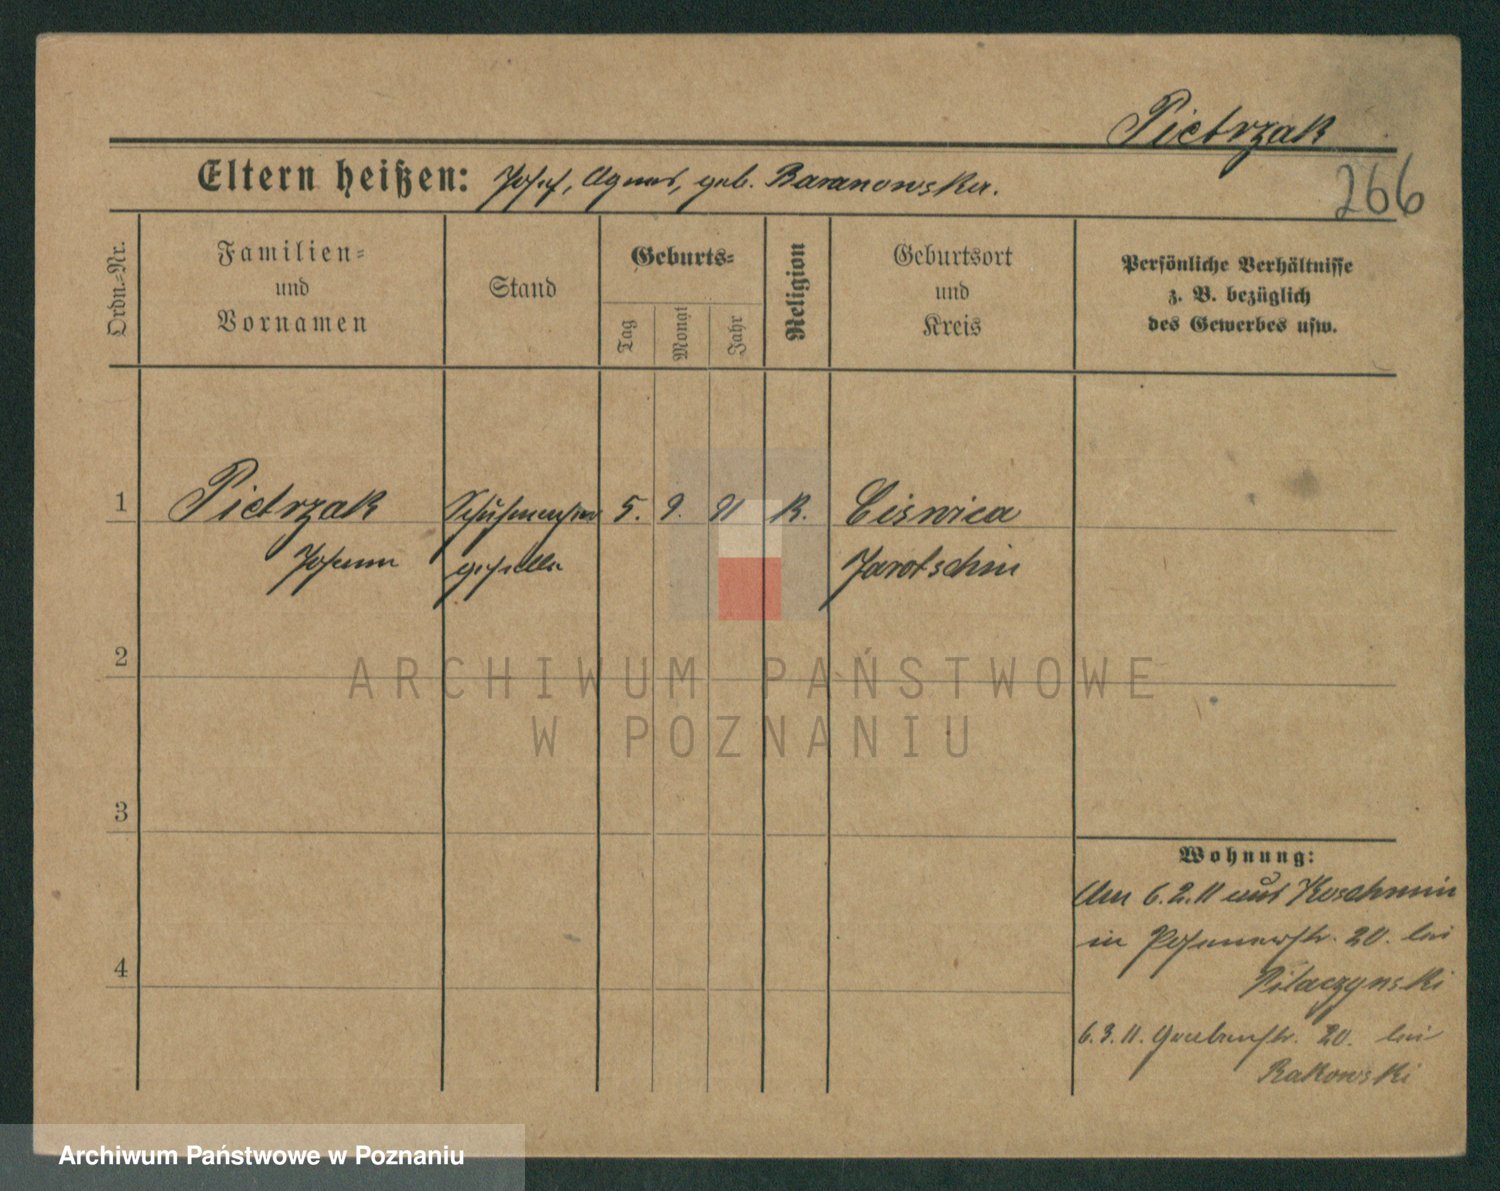 Pietrzak
266
Eltern heißen: Josef, Agnes, geb. Baranowska.
Ordn.-Nr.
Familien-
und
Vornamen
Stand
Geburts-
Tag
Monat
Jahr
Religion
Geburtsort
und
Kreis
Persönliche Verhältnisse
z. B. bezüglich
des Gewerbes usw.
1 Pietrzak Schuhmacher 5. 9. 91 K. Ciswica
Johann geselle Jarotschin
2
3
4
Wohnung:
Am 6.2.11 aus Koschmin
in Posenerstr. 20. bei
Pilaczynski
6.3.11. Grabenstr. 20. bei
Rakowski
ARCHIWUM PAŃSTWOWE
W POZNANIU
Archiwum Państwowe w Poznaniu